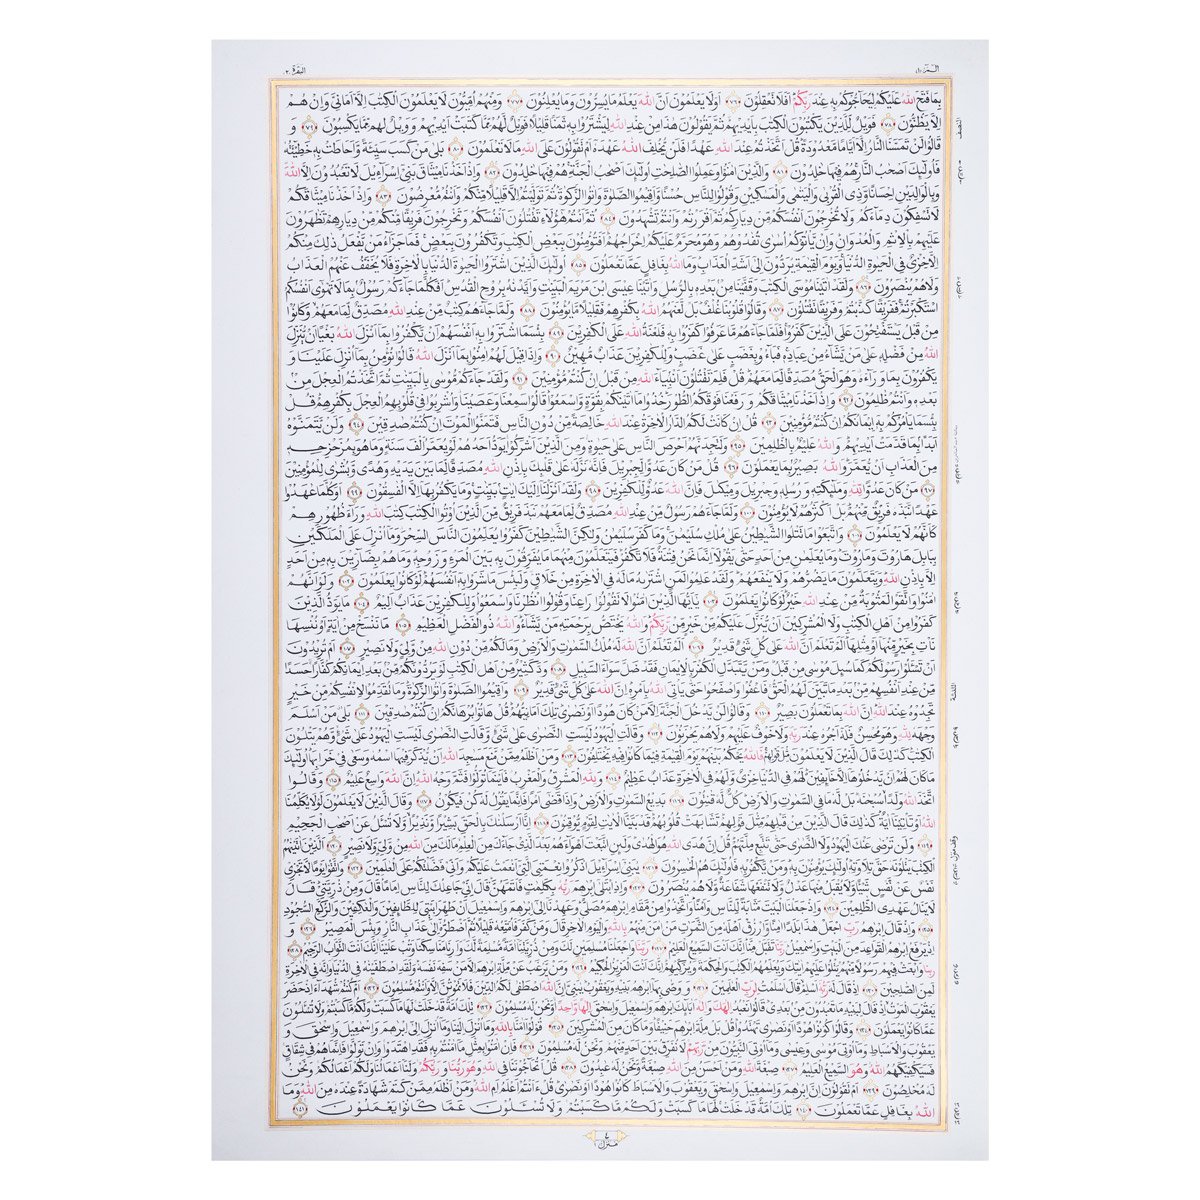 الم ١
البقرة ٢
بما فتح الله عليكم ليحاجوكم به عند ربكم افلا تعقلون ﴿٧٦﴾ اولا يعلمون ان الله يعلم ما يسرون وما يعلنون ﴿٧٧﴾ ومنهم اميون لا يعلمون الكتب الا اماني وان هم
الا يظنون ﴿٧٨﴾ فويل للذين يكتبون الكتب بايديهم ثم يقولون هذا من عند الله ليشتروا به ثمنا قليلا فويل لهم مما كتبت ايديهم وويل لهم مما يكسبون ﴿٧٩﴾ و
قالوا لن تمسنا النار الا اياما معدودة قل اتخذتم عند الله عهدا فلن يخلف الله عهده ام تقولون على الله ما لا تعلمون ﴿٨٠﴾ بلى من كسب سيئة واحاطت به خطيئته
فاولئك اصحب النار هم فيها خلدون ﴿٨١﴾ والذين امنوا وعملوا الصلحت اولئك اصحب الجنة هم فيها خلدون ﴿٨٢﴾ واذ اخذنا ميثاق بني اسراءيل لا تعبدون الا الله
وبالوالدين احسانا وذي القربى واليتمى والمسكين وقولوا للناس حسنا واقيموا الصلوة واتوا الزكوة ثم توليتم الا قليلا منكم وانتم معرضون ﴿٨٣﴾ واذ اخذنا ميثاقكم
لا تسفكون دماءكم ولا تخرجون انفسكم من دياركم ثم اقررتم وانتم تشهدون ﴿٨٤﴾ ثم انتم هؤلاء تقتلون انفسكم وتخرجون فريقا منكم من ديارهم تظهرون
عليهم بالاثم والعدوان وان ياتوكم اسرى تفدوهم وهو محرم عليكم اخراجهم افتؤمنون ببعض الكتب وتكفرون ببعض فما جزاء من يفعل ذلك منكم
الا خزي في الحيوة الدنيا ويوم القيمة يردون الى اشد العذاب وما الله بغافل عما تعملون ﴿٨٥﴾ اولئك الذين اشتروا الحيوة الدنيا بالاخرة فلا يخفف عنهم العذاب
ولا هم ينصرون ﴿٨٦﴾ ولقد اتينا موسى الكتب وقفينا من بعده بالرسل واتينا عيسى ابن مريم البينت وايدنه بروح القدس افكلما جاءكم رسول بما لا تهوى انفسكم
استكبرتم ففريقا كذبتم وفريقا تقتلون ﴿٨٧﴾ وقالوا قلوبنا غلف بل لعنهم الله بكفرهم فقليلا ما يؤمنون ﴿٨٨﴾ ولما جاءهم كتب من عند الله مصدق لما معهم وكانوا
من قبل يستفتحون على الذين كفروا فلما جاءهم ما عرفوا كفروا به فلعنة الله على الكفرين ﴿٨٩﴾ بئسما اشتروا به انفسهم ان يكفروا بما انزل الله بغيا ان ينزل
الله من فضله على من يشاء من عباده فباءو بغضب على غضب وللكفرين عذاب مهين ﴿٩٠﴾ واذا قيل لهم امنوا بما انزل الله قالوا نؤمن بما انزل علينا و
يكفرون بما وراءه وهو الحق مصدقا لما معهم قل فلم تقتلون انبياء الله من قبل ان كنتم مؤمنين ﴿٩١﴾ ولقد جاءكم موسى بالبينت ثم اتخذتم العجل من
بعده وانتم ظلمون ﴿٩٢﴾ واذ اخذنا ميثاقكم ورفعنا فوقكم الطور خذوا ما اتينكم بقوة واسمعوا قالوا سمعنا وعصينا واشربوا في قلوبهم العجل بكفرهم قل
بئسما يامركم به ايمانكم ان كنتم مؤمنين ﴿٩٣﴾ قل ان كانت لكم الدار الاخرة عند الله خالصة من دون الناس فتمنوا الموت ان كنتم صدقين ﴿٩٤﴾ ولن يتمنوه
ابدا بما قدمت ايديهم والله عليم بالظلمين ﴿٩٥﴾ ولتجدنهم احرص الناس على حيوة ومن الذين اشركوا يود احدهم لو يعمر الف سنة وما هو بمزحزحه
من العذاب ان يعمر والله بصير بما يعملون ﴿٩٦﴾ قل من كان عدوا لجبريل فانه نزله على قلبك باذن الله مصدقا لما بين يديه وهدى وبشرى للمؤمنين
﴿٩٧﴾ من كان عدوا لله وملئكته ورسله وجبريل وميكل فان الله عدو للكفرين ﴿٩٨﴾ ولقد انزلنا اليك ايت بينت وما يكفر بها الا الفسقون ﴿٩٩﴾ اوكلما عهدوا
عهدا نبذه فريق منهم بل اكثرهم لا يؤمنون ﴿١٠٠﴾ ولما جاءهم رسول من عند الله مصدق لما معهم نبذ فريق من الذين اوتوا الكتب كتب الله وراء ظهورهم
كانهم لا يعلمون ﴿١٠١﴾ واتبعوا ما تتلوا الشيطين على ملك سليمن وما كفر سليمن ولكن الشيطين كفروا يعلمون الناس السحر وما انزل على الملكين
ببابل هاروت وماروت وما يعلمن من احد حتى يقولا انما نحن فتنة فلا تكفر فيتعلمون منهما ما يفرقون به بين المرء وزوجه وما هم بضارين به من احد
الا باذن الله ويتعلمون ما يضرهم ولا ينفعهم ولقد علموا لمن اشتريه ما له في الاخرة من خلاق ولبئس ما شروا به انفسهم لو كانوا يعلمون ﴿١٠٢﴾ ولو انهم
امنوا واتقوا لمثوبة من عند الله خير لو كانوا يعلمون ﴿١٠٣﴾ يايها الذين امنوا لا تقولوا راعنا وقولوا انظرنا واسمعوا وللكفرين عذاب اليم ﴿١٠٤﴾ ما يود الذين
كفروا من اهل الكتب ولا المشركين ان ينزل عليكم من خير من ربكم والله يختص برحمته من يشاء والله ذو الفضل العظيم ﴿١٠٥﴾ ما ننسخ من اية او ننسها
نات بخير منها او مثلها الم تعلم ان الله على كل شيء قدير ﴿١٠٦﴾ الم تعلم ان الله له ملك السموت والارض وما لكم من دون الله من ولي ولا نصير ﴿١٠٧﴾ ام تريدون
ان تسئلوا رسولكم كما سئل موسى من قبل ومن يتبدل الكفر بالايمان فقد ضل سواء السبيل ﴿١٠٨﴾ ود كثير من اهل الكتب لو يردونكم من بعد ايمانكم كفارا حسدا
من عند انفسهم من بعد ما تبين لهم الحق فاعفوا واصفحوا حتى ياتي الله بامره ان الله على كل شيء قدير ﴿١٠٩﴾ واقيموا الصلوة واتوا الزكوة وما تقدموا لانفسكم من خير
تجدوه عند الله ان الله بما تعملون بصير ﴿١١٠﴾ وقالوا لن يدخل الجنة الا من كان هودا او نصرى تلك امانيهم قل هاتوا برهانكم ان كنتم صدقين ﴿١١١﴾ بلى من اسلم
وجهه لله وهو محسن فله اجره عند ربه ولا خوف عليهم ولا هم يحزنون ﴿١١٢﴾ وقالت اليهود ليست النصرى على شيء وقالت النصرى ليست اليهود على شيء وهم يتلون
الكتب كذلك قال الذين لا يعلمون مثل قولهم فالله يحكم بينهم يوم القيمة فيما كانوا فيه يختلفون ﴿١١٣﴾ ومن اظلم ممن منع مسجد الله ان يذكر فيها اسمه وسعى في خرابها اولئك
ما كان لهم ان يدخلوها الا خائفين لهم في الدنيا خزي ولهم في الاخرة عذاب عظيم ﴿١١٤﴾ ولله المشرق والمغرب فاينما تولوا فثم وجه الله ان الله واسع عليم ﴿١١٥﴾ وقالوا
اتخذ الله ولدا سبحنه بل له ما في السموت والارض كل له قنتون ﴿١١٦﴾ بديع السموت والارض واذا قضى امرا فانما يقول له كن فيكون ﴿١١٧﴾ وقال الذين لا يعلمون لولا يكلمنا
الله او تاتينا اية كذلك قال الذين من قبلهم مثل قولهم تشابهت قلوبهم قد بينا الايت لقوم يوقنون ﴿١١٨﴾ انا ارسلنك بالحق بشيرا ونذيرا ولا تسئل عن اصحب الجحيم
﴿١١٩﴾ ولن ترضى عنك اليهود ولا النصرى حتى تتبع ملتهم قل ان هدى الله هو الهدى ولئن اتبعت اهواءهم بعد الذي جاءك من العلم ما لك من الله من ولي ولا نصير ﴿١٢٠﴾ الذين اتينهم
الكتب يتلونه حق تلاوته اولئك يؤمنون به ومن يكفر به فاولئك هم الخسرون ﴿١٢١﴾ يبني اسراءيل اذكروا نعمتي التي انعمت عليكم واني فضلتكم على العلمين ﴿١٢٢﴾ واتقوا يوما لا تجزي
نفس عن نفس شيئا ولا يقبل منها عدل ولا تنفعها شفاعة ولا هم ينصرون ﴿١٢٣﴾ واذ ابتلى ابرهم ربه بكلمت فاتمهن قال اني جاعلك للناس اماما قال ومن ذريتي قال
لا ينال عهدي الظلمين ﴿١٢٤﴾ واذ جعلنا البيت مثابة للناس وامنا واتخذوا من مقام ابرهم مصلى وعهدنا الى ابرهم واسمعيل ان طهرا بيتي للطائفين والعكفين والركع السجود
﴿١٢٥﴾ واذ قال ابرهم رب اجعل هذا بلدا امنا وارزق اهله من الثمرت من امن منهم بالله واليوم الاخر قال ومن كفر فامتعه قليلا ثم اضطره الى عذاب النار وبئس المصير ﴿١٢٦﴾ و
اذ يرفع ابرهم القواعد من البيت واسمعيل ربنا تقبل منا انك انت السميع العليم ﴿١٢٧﴾ ربنا واجعلنا مسلمين لك ومن ذريتنا امة مسلمة لك وارنا مناسكنا وتب علينا انك انت التواب الرحيم ﴿١٢٨﴾
ربنا وابعث فيهم رسولا منهم يتلوا عليهم ايتك ويعلمهم الكتب والحكمة ويزكيهم انك انت العزيز الحكيم ﴿١٢٩﴾ ومن يرغب عن ملة ابرهم الا من سفه نفسه ولقد اصطفينه في الدنيا وانه في الاخرة
لمن الصلحين ﴿١٣٠﴾ اذ قال له ربه اسلم قال اسلمت لرب العلمين ﴿١٣١﴾ ووصى بها ابرهم بنيه ويعقوب يبني ان الله اصطفى لكم الدين فلا تموتن الا وانتم مسلمون ﴿١٣٢﴾ ام كنتم شهداء اذ حضر
يعقوب الموت اذ قال لبنيه ما تعبدون من بعدي قالوا نعبد الهك واله ابائك ابرهم واسمعيل واسحق الها واحدا ونحن له مسلمون ﴿١٣٣﴾ تلك امة قد خلت لها ما كسبت ولكم ما كسبتم ولا تسئلون
عما كانوا يعملون ﴿١٣٤﴾ وقالوا كونوا هودا او نصرى تهتدوا قل بل ملة ابرهم حنيفا وما كان من المشركين ﴿١٣٥﴾ قولوا امنا بالله وما انزل الينا وما انزل الى ابرهم واسمعيل واسحق و
يعقوب والاسباط وما اوتي موسى وعيسى وما اوتي النبيون من ربهم لا نفرق بين احد منهم ونحن له مسلمون ﴿١٣٦﴾ فان امنوا بمثل ما امنتم به فقد اهتدوا وان تولوا فانما هم في شقاق
فسيكفيكهم الله وهو السميع العليم ﴿١٣٧﴾ صبغة الله ومن احسن من الله صبغة ونحن له عبدون ﴿١٣٨﴾ قل اتحاجوننا في الله وهو ربنا وربكم ولنا اعمالنا ولكم اعمالكم ونحن
له مخلصون ﴿١٣٩﴾ ام تقولون ان ابرهم واسمعيل واسحق ويعقوب والاسباط كانوا هودا او نصرى قل ءانتم اعلم ام الله ومن اظلم ممن كتم شهادة عنده من الله وما
الله بغافل عما تعملون ﴿١٤٠﴾ تلك امة قد خلت لها ما كسبت ولكم ما كسبتم ولا تسئلون عما كانوا يعملون ﴿١٤١﴾
منزل ١
٤